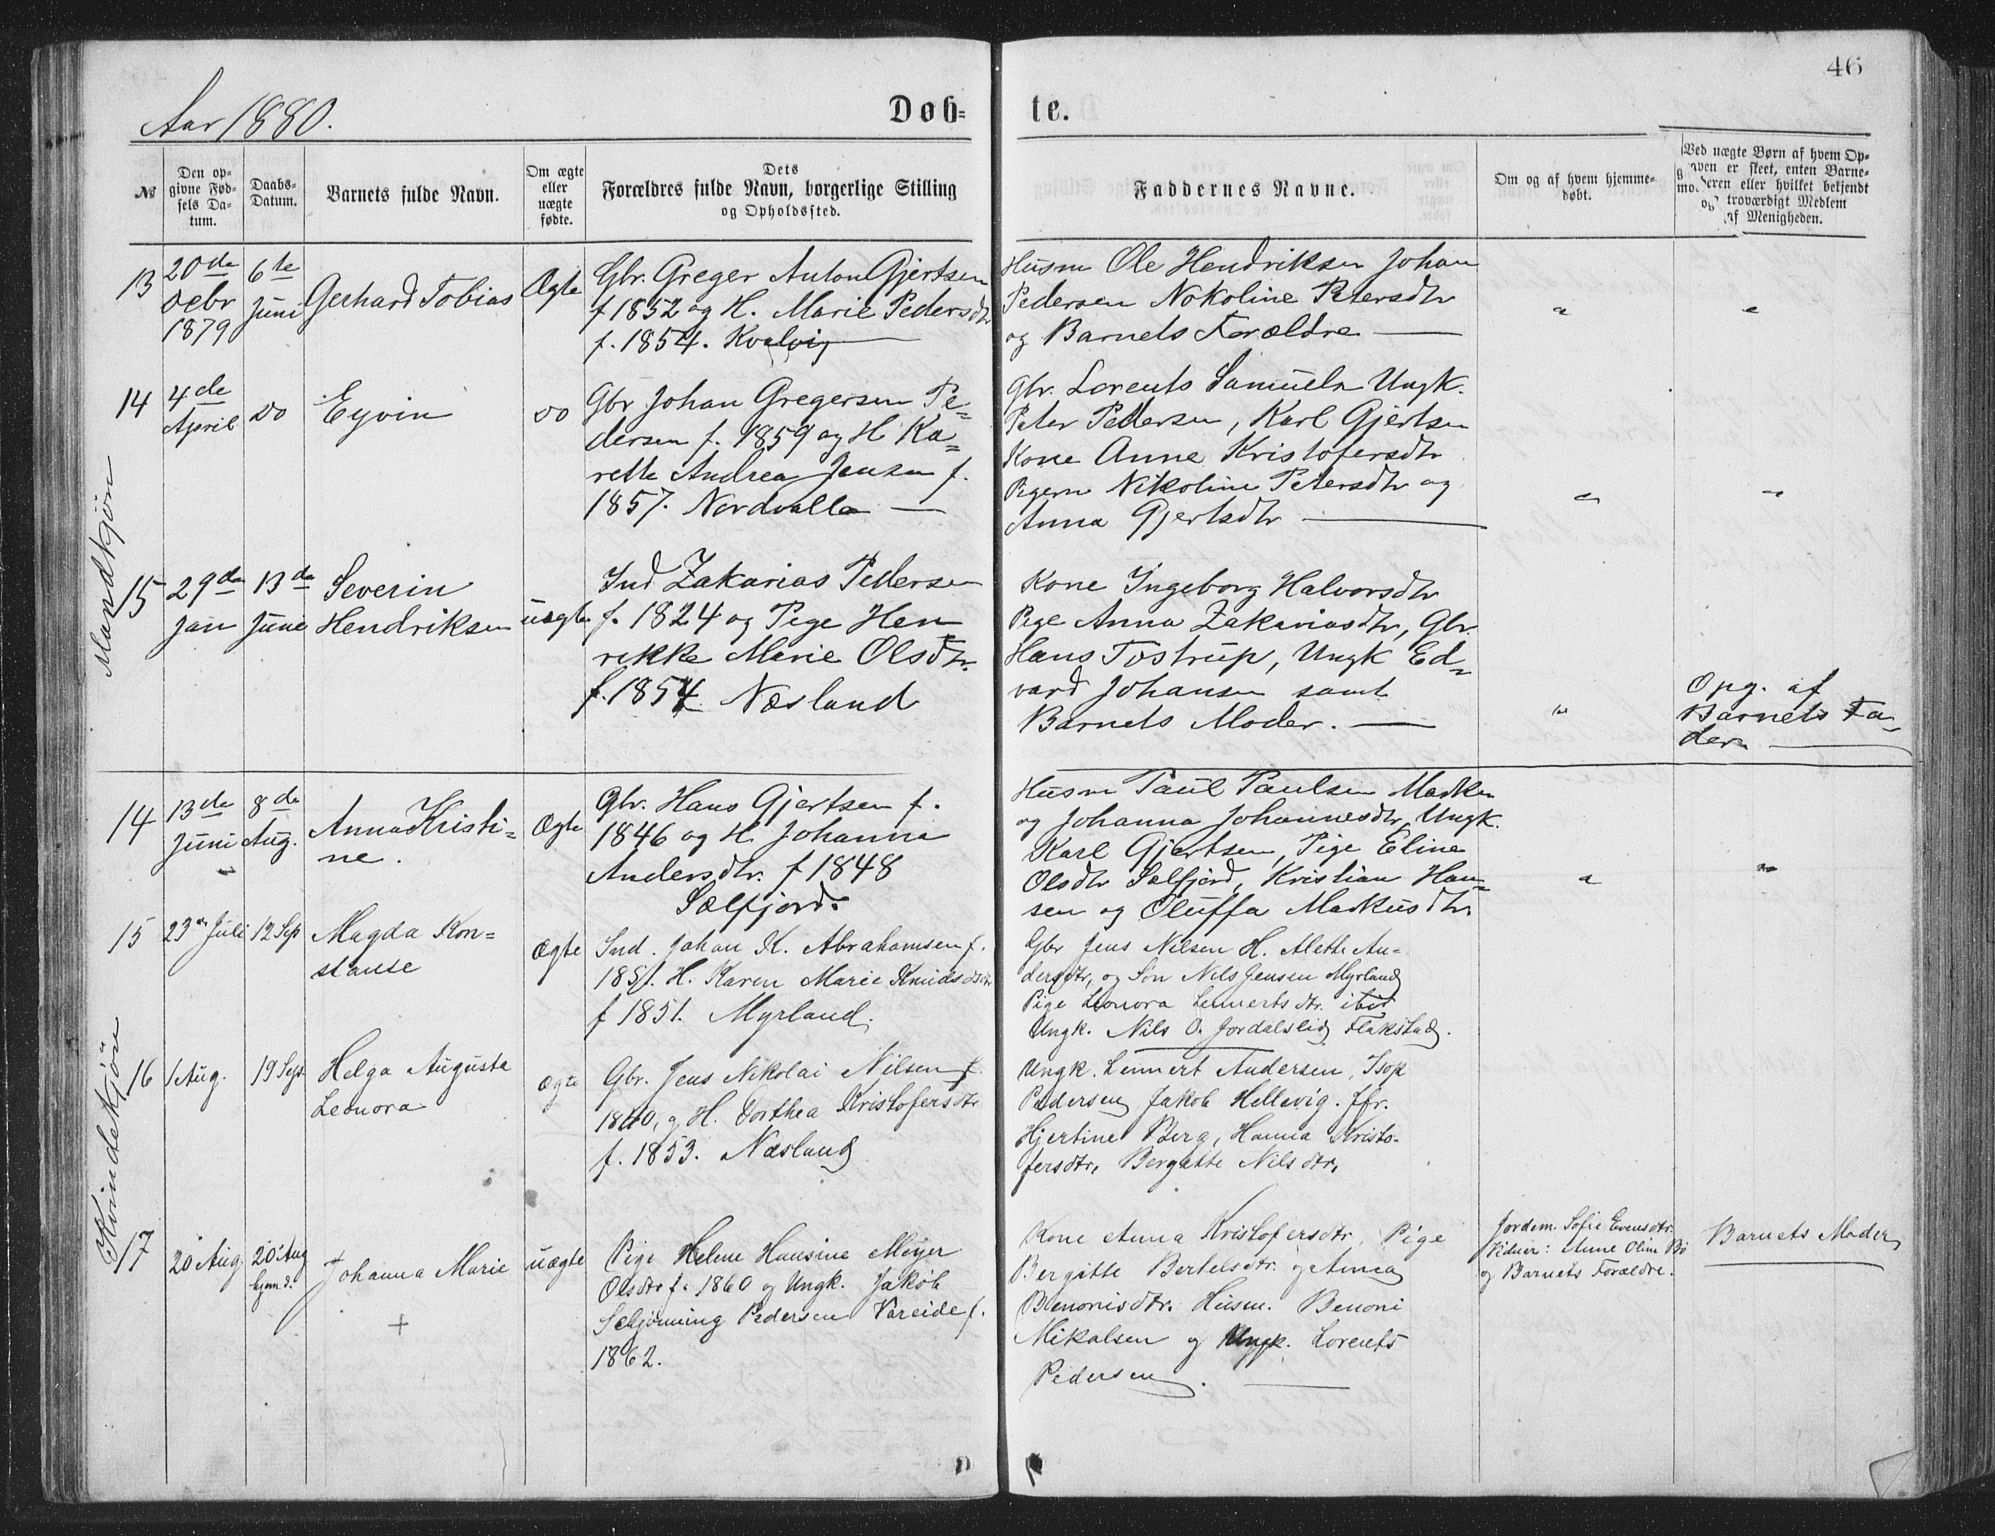 46
Aar 1880.
Døb-
te.
№
Den op-
givne Fød-
sels Da-
tum.
Daabs-
Datum.
Barnets fulde Navn.
Om ægte
eller
uægte
fødte.
Dets
Forældres fulde Navn, borgerlige Stilling
og Opholdssted.
Faddernes Navne.
Om og af hvem hjemme-
døbt.
Ved uægte Børn af hvem Op-
gaven er skeet, enten Barne-
moderen eller hvilket bekjendt
og troværdigt Medlem
af Menigheden.
Mandkjön
13
20de
Debr
1879
6te
Juni
Gerhard Tobias
Ægte
Gbr. Greger Anton Gjertsen
f 1852 og H. Marie Pedersdtr
f. 1854. Kvalvig
Husm Ole Hendriksen Johan
Pedersen Nokoline Petersdtr
og Barnets Forældre
14
4de
April
do
Eyvin
do
Gbr Johan Gregersen Pe=
dersen f. 1859 og H Ka=
rette Andrea Jensen f.
1857. Nordvalle
Gbr. Lorents Samuels Ungk.
Peter Pedersen, Karl Gjertsen
Kone Anne Kristofersdtr
Pigerne Nikoline Petersdtr og
Anna Gjertsdtr
15
29de
Jan
13de
June
Severin
Hendriksen
uægte
Ind Zakarias Pedersen
f. 1824 og Pige Hen
rekke Marie Olsdtr.
f. 1854 Næsland
Kone Ingeborg Halvorsdtr
Pige Anna Zakariasdtr, Gbr.
Hans Tostrup, Ungk Ed=
vard Johansen samt
Barnets Moder.
Opg. af
Barnets Fa=
der.
Kvindekjön
14
13de
Juni
8de
Aug.
Anna Kristi=
ne.
Ægte
Gbr. Hans Gjertsen f.
1846 og H Johanna
Andersdtr. f 1848
Sælfjord.
Husm Paul Paulsen
og Johanna Johannesdtr, Ungk.
Karl Gjertsen, Pige Eline
Olsdtr Sælfjord, Kristian Han=
sen og Oluffa Markusdtr
15
23de Juli
12 Sep
Magda Kon=
stanse
Ægte
Ind. Johan K. Abrahamsen f.
1851. H. Karen Marie Knudsdtr
f 1851. Myrland.
Gbr Jens Nilsen H. Alette An-
dersdtr, og Søn Nils Jensen Myrland
Pige Leonora Lennertsdtr. ibid
Ungk. Nils O. Jordalslid Flakstad.
16
1 Aug.
19 Sept
Helga Augusta
Leonora
Ægte
Gbr. Jens Nikolai Nilsen f.
1840, og H. Dorthea Kristofersdtr
f. 1853. Næsland
Ungk. Lennert Andersen, Isop
Pedersen Jakob Hellevig. Jfr.
Hjertine Berg, Hanna Kristo-
fersdtr, Bergitte Nilsdtr,
17
20 Aug.
20 Aug
hjemd.
Johanna Marie
+
uægte
Pige Helene Hansine Meyer
Olsdtr f. 1860 og Ungk. Jakob
Schjønning Pedersen Vareide f.
1862.
Kone Anna Kristofersdtr, Pige
Bergitte Bertelsdtr. og Anna
Benonisdtr. Husm. Benoni
Mikalsen og Ungk. Lorents
Pedersen.
Jordem. Sofie Evensdtr.
Vidner: Anne Oline Bö
og Barnets Forældre.
Barnets Moder